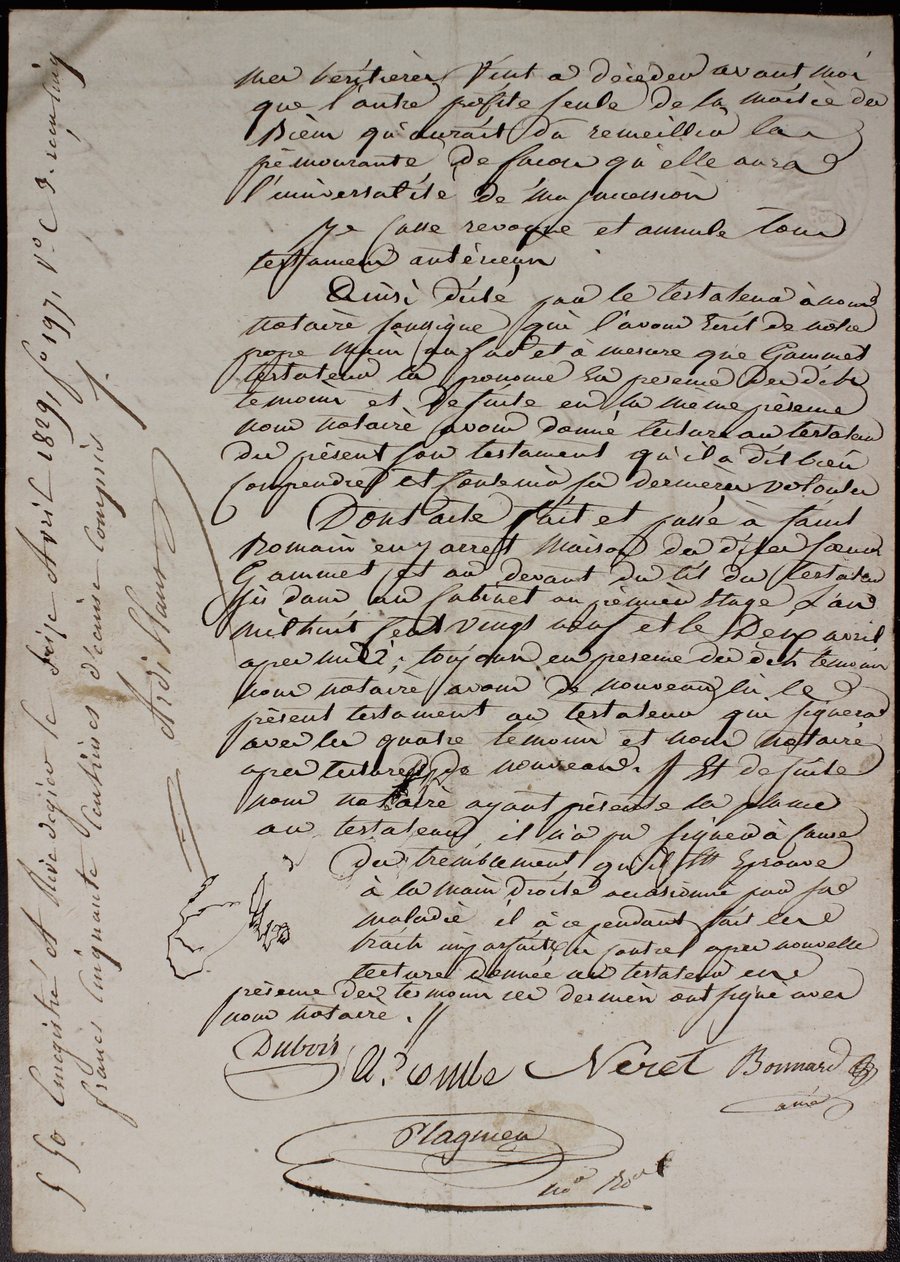 mes héritières vint a décéder avant moi
que l'autre profite seule de la moitié des
Biens qu'aurait du recueillir la
prémourante de facon qu'elle aura
l'universalité de ma succession
Je casse revoque et annule tous
testament antérieur
Ainsi dicté par le testateur à nous
notaire soussigné qui l'avons Ecrit de notre
propre main au fur et à mesure que Gammet
testateur la prononcé En présence des dits
temoins et de suite en la même présence
nous notaire avons donné lecture au testateur
du présent son testament qu'il a dit bien
comprendre et contenir sa dernière volonté
Dont acte fait et passé à saint
Romain en jarrest maison des dites soeurs
Gammet et au devant du lit du testateur
sis dans un Cabinet au premier étage L'an
mil huit Cent vingt neuf et le Deux avril
apres midi ; toujours en presence des dits temoins
nous notaire avons de nouveau lu le
présent testament au testateur qui signera
avec les quatre temoins et nous notaire
apres lecture de nouveau. // Et de suite
nous notaire ayant présenté la plume
au testateur il n'a pu signer à cause
du tremblement qu'il Eprouve
à la main droite occasionné par sa
maladie il à cependant fait les
traits imparfaits ci contre apres nouvelle
lecture donnée au testateur en
présence des temoins ces derniers ont signé avec
nous notaire. //
Dubois
Combe
Neret
Bonnard
ainé
Plagnieu
no.re Roy.al
f 50 Enregistré A Rive de gier le Seize Avril 1829, f.o 197, V.o C 3. reçu cinq
francs Cinquante Centimes décime compris
Ardillans